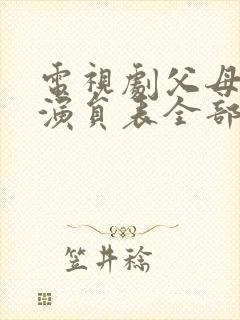 電視劇父母
演員表全部
笠井稔